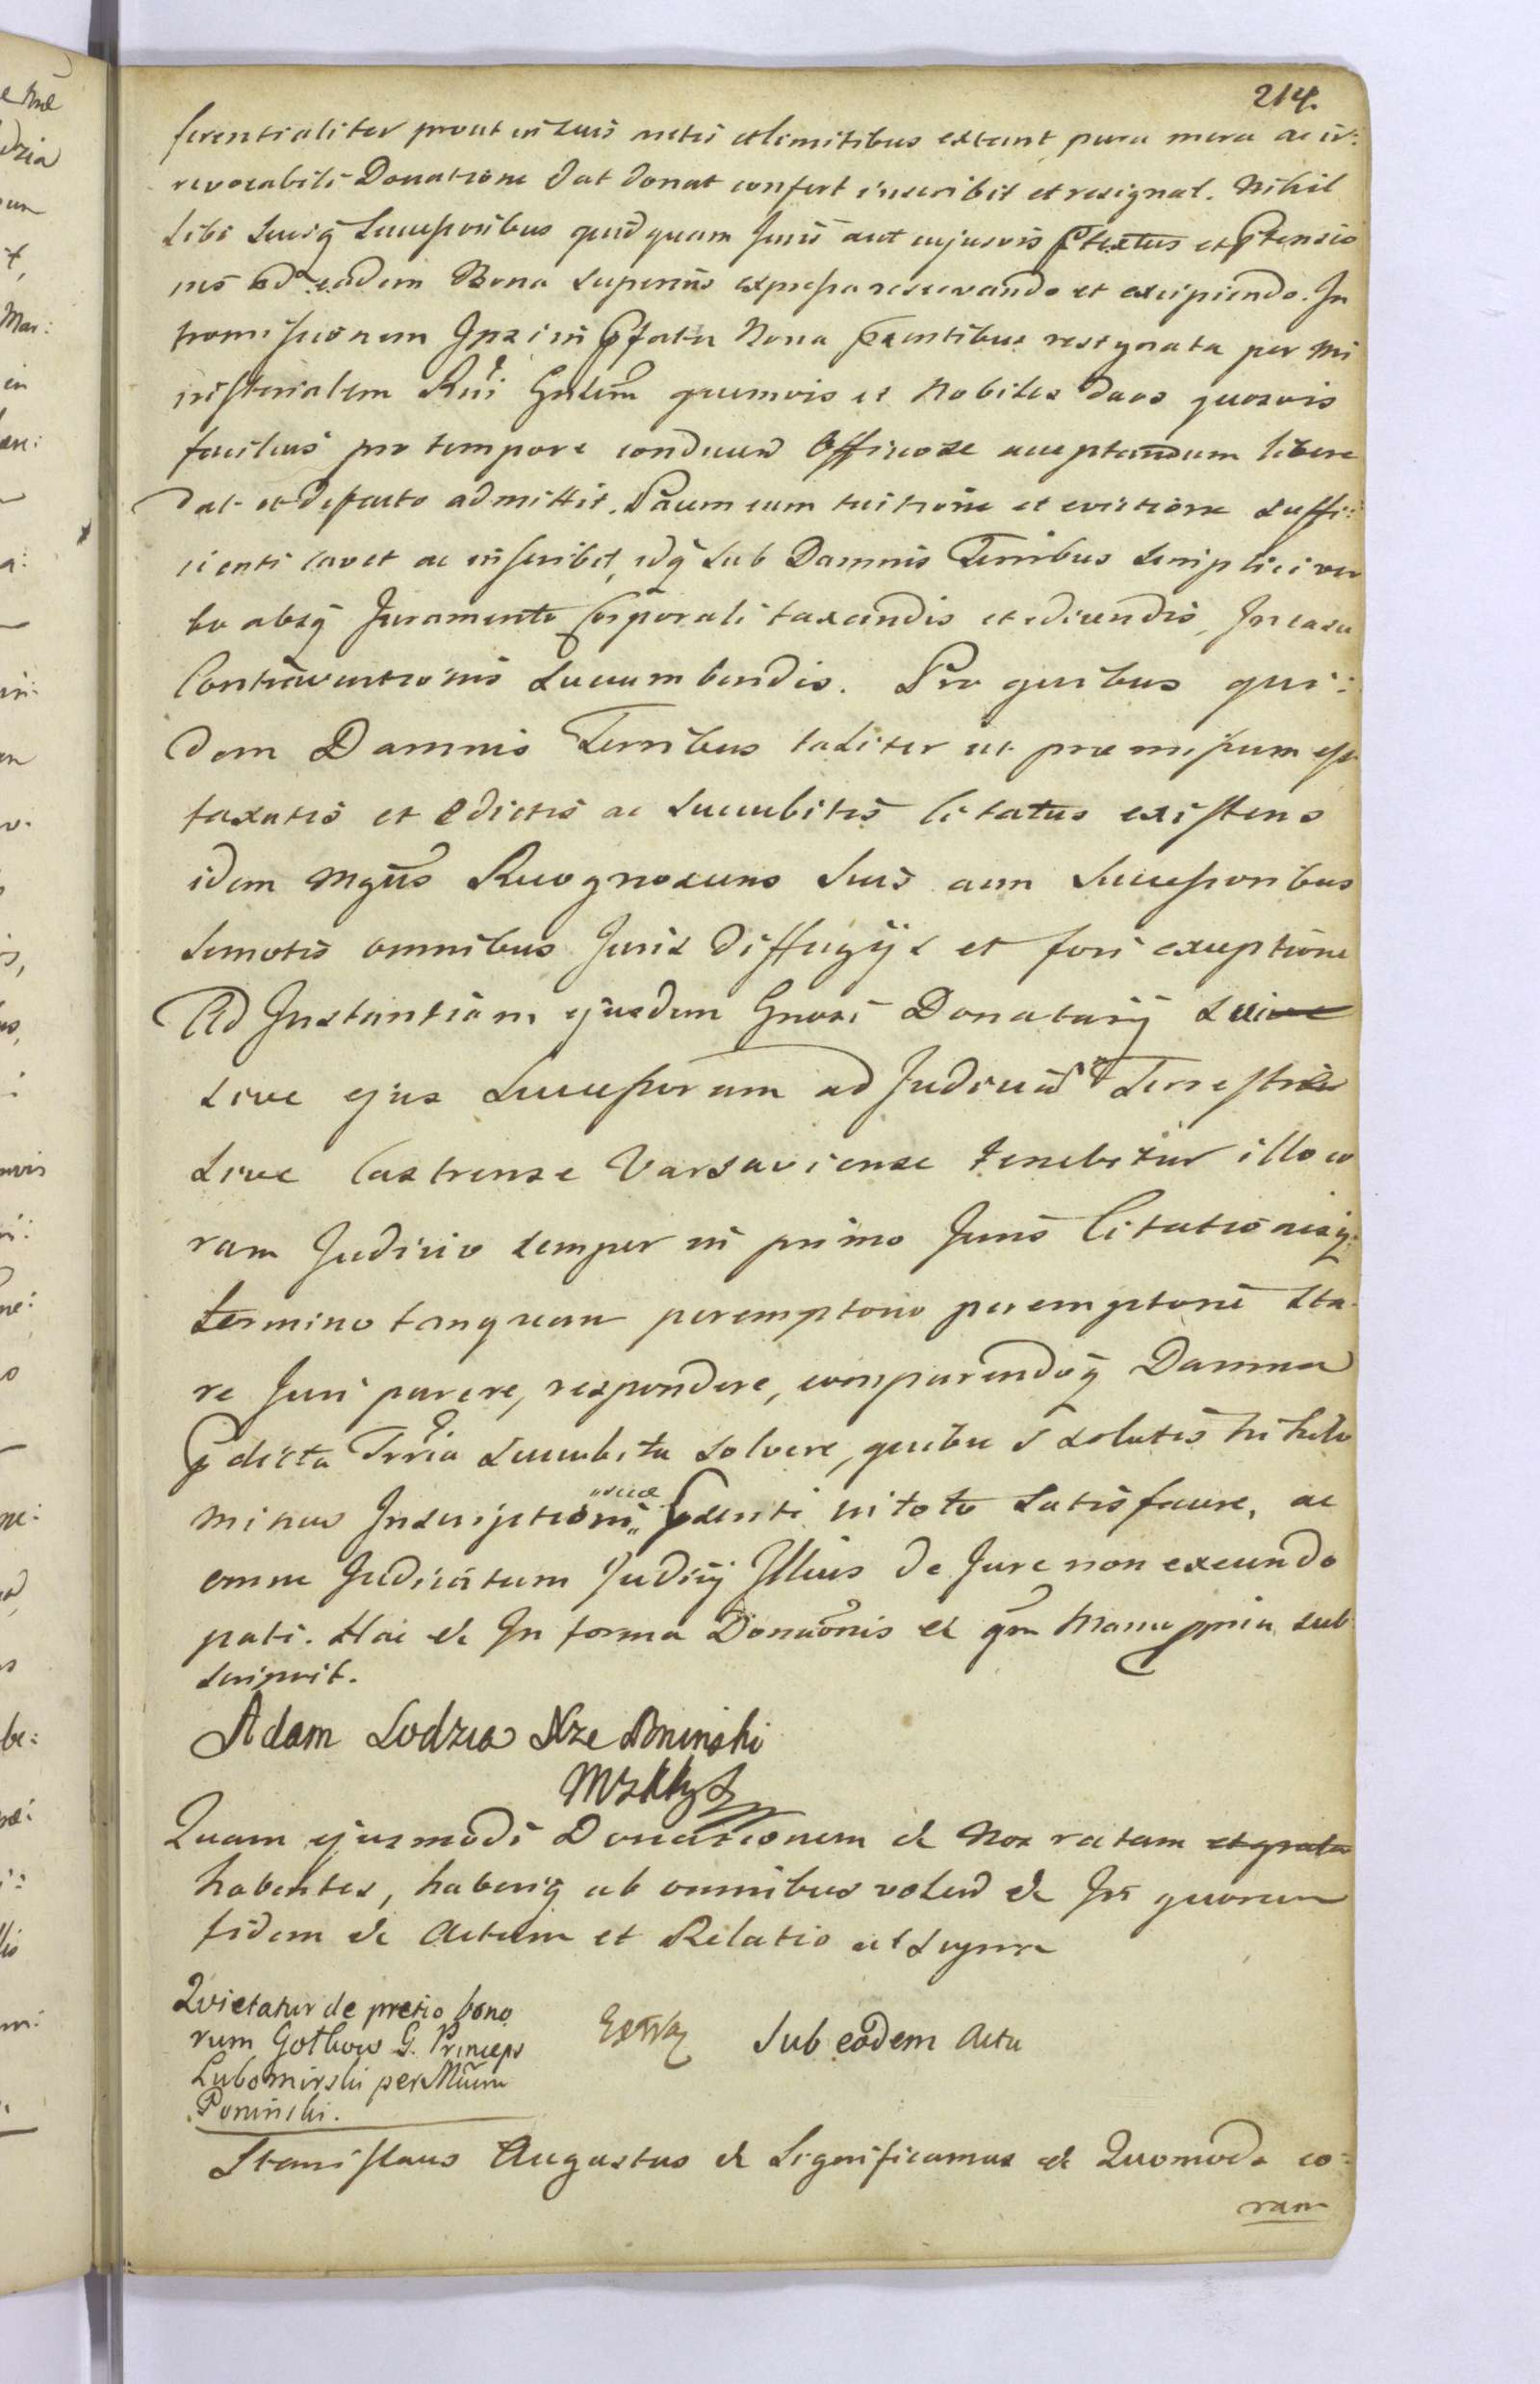 214.
ferentialiter prout in suis metis et limitibus extant pura mera ac ir:
revocabili Donatione dat donat confert inscribit et resignat. Nihil
sibi suisq̃ Successoribus quidquam Juris aut cujusvis Ptextus et Ptensio
nis ad eadem Bona superius expressa reservando et excipiendo. In
tromissionem Ipsi in pfata Bona pntibus resignata per Mi
nisterialem Rni Gnlem quemvis et Nobiles duos quosvis
facilius pro tempore conducen Officiose acceptandum libere
dat et de facto admittit. Pacem cum tuitione et evictione suffi:
cienti cavet ac inscribit, idq̃ sub Damnis Terribus simplici ver
bo absq̃ Juramento Corporali taxandis et edicendis, In casu
Contraventionis succumbendis. Pro quibus qui:
dem Damnis Terribus taliter ut præmissum est
taxatis et edictis ac succubitis Citatus existens
idem Mgñs Recognoscens suis cum Successoribus
semotis omnibus Juris diffugijs et fori exceptione
Ad Instantiam ejusdem Gnosi Donatarij suive
sive ejus Successorum ad Judicia Terrestria
sive Castrense Varsaviense tenebitur illo co
ram Judicio semper in primo Juris Citationisq̃
termino tanquam peremptorio peremptorie sta
re Juri parere, respondere, comparendoq̃ Damna
pdicta Trria succubita solvere, quibus solutis nihilo
minus Inscriptioni suæ psenti in toto satisfacere, ac
omne Judicatum Judicij Illius de Jure non exeundo
pati. Hac &c In forma Donãonis et qm Manu ppria sub
scripsit.
Adam Lodzia Xze Poninski
Quam ejusmodi Donationem &c Nos ratam et grata
habentes, haberiq̃ ab omnibus volen &c In quorum
fidem &c Actum et Relatio ut supra
Qvietatur de pretio bono
rum Gotkow G. Princeps
Lubomirski per Mũm
Poninski.
Sub eodem Actu
Stanislaus Augustus &c Significamus &c Quomodo co:
ram